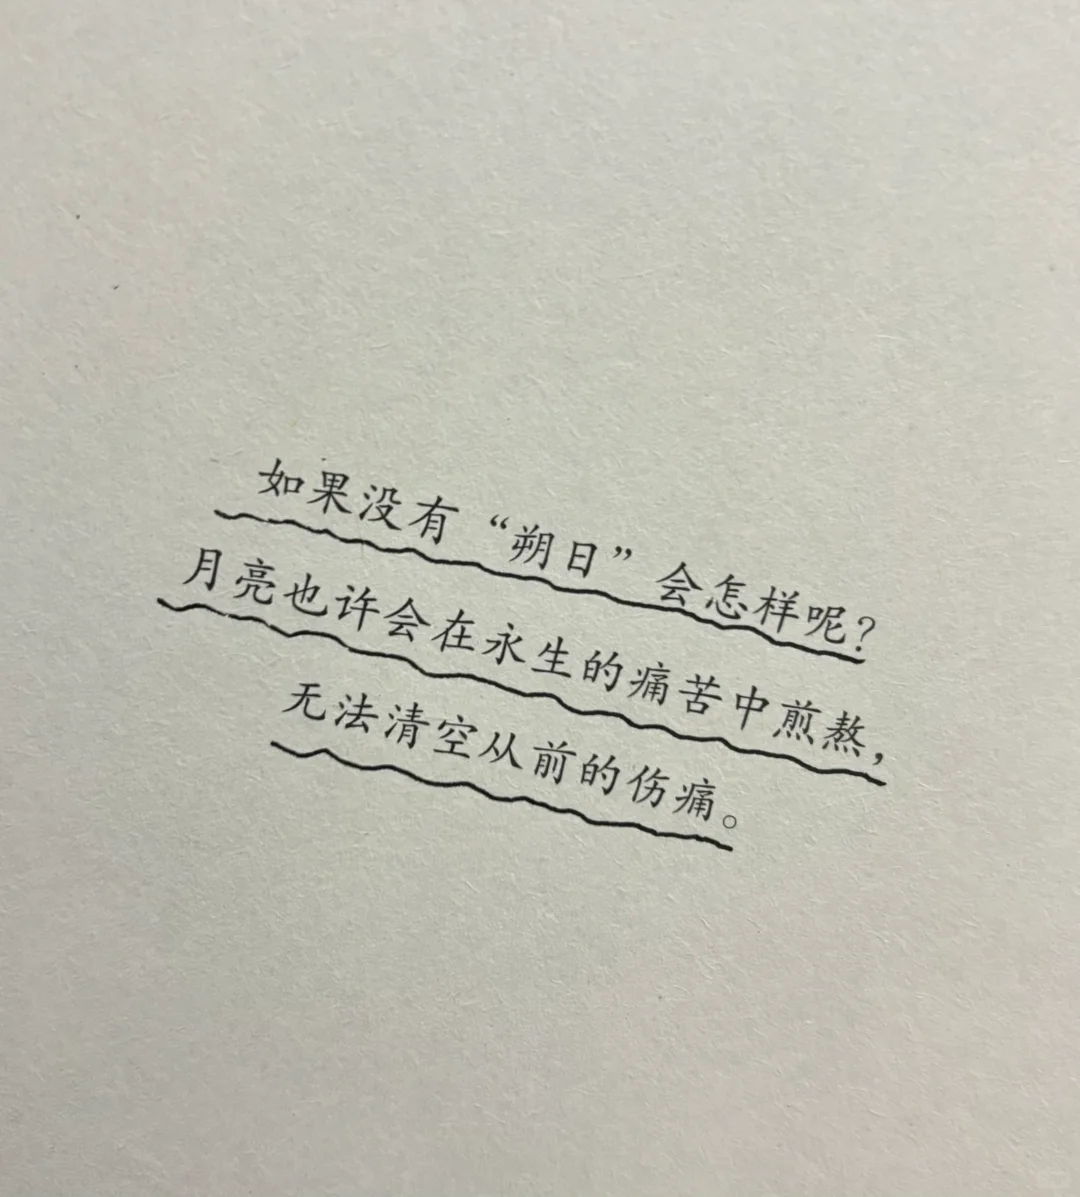 如果没有“朔日”会怎样呢？
月亮也许会在永生的痛苦中煎熬，
无法清空从前的伤痛。